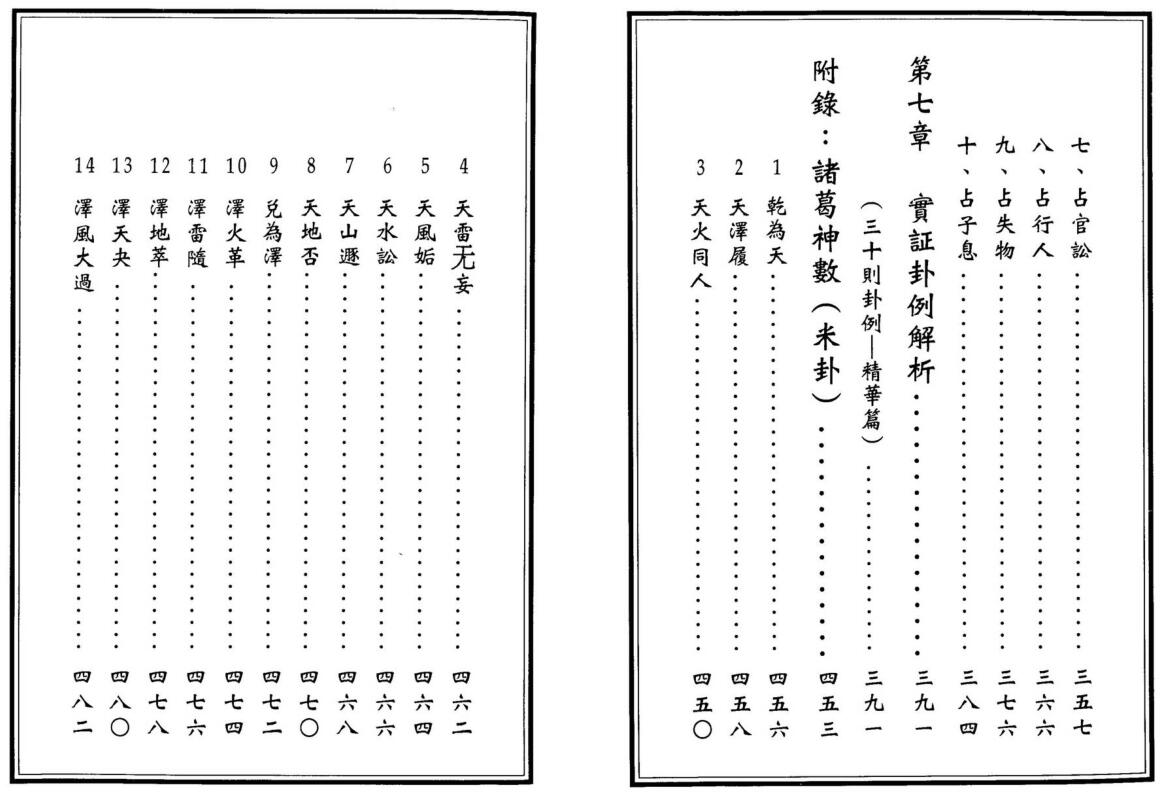 七、占官訟……三五七
八、占行人……三六六
九、占失物……三七六
十、占子息……三八四
第七章 實証卦例解析……三九一
（三十則卦例—精華篇）……三九一
附錄：諸葛神數（米卦）……四五三
1 乾為天……四五六
2 天澤履……四五八
3 天火同人……四五〇
4 天雷无妄……四六二
5 天風姤……四六四
6 天水訟……四六六
7 天山遯……四六八
8 天地否……四七〇
9 兌為澤……四七二
10 澤火革……四七四
11 澤雷隨……四七六
12 澤地萃……四七八
13 澤天夬……四八〇
14 澤風大過……四八二